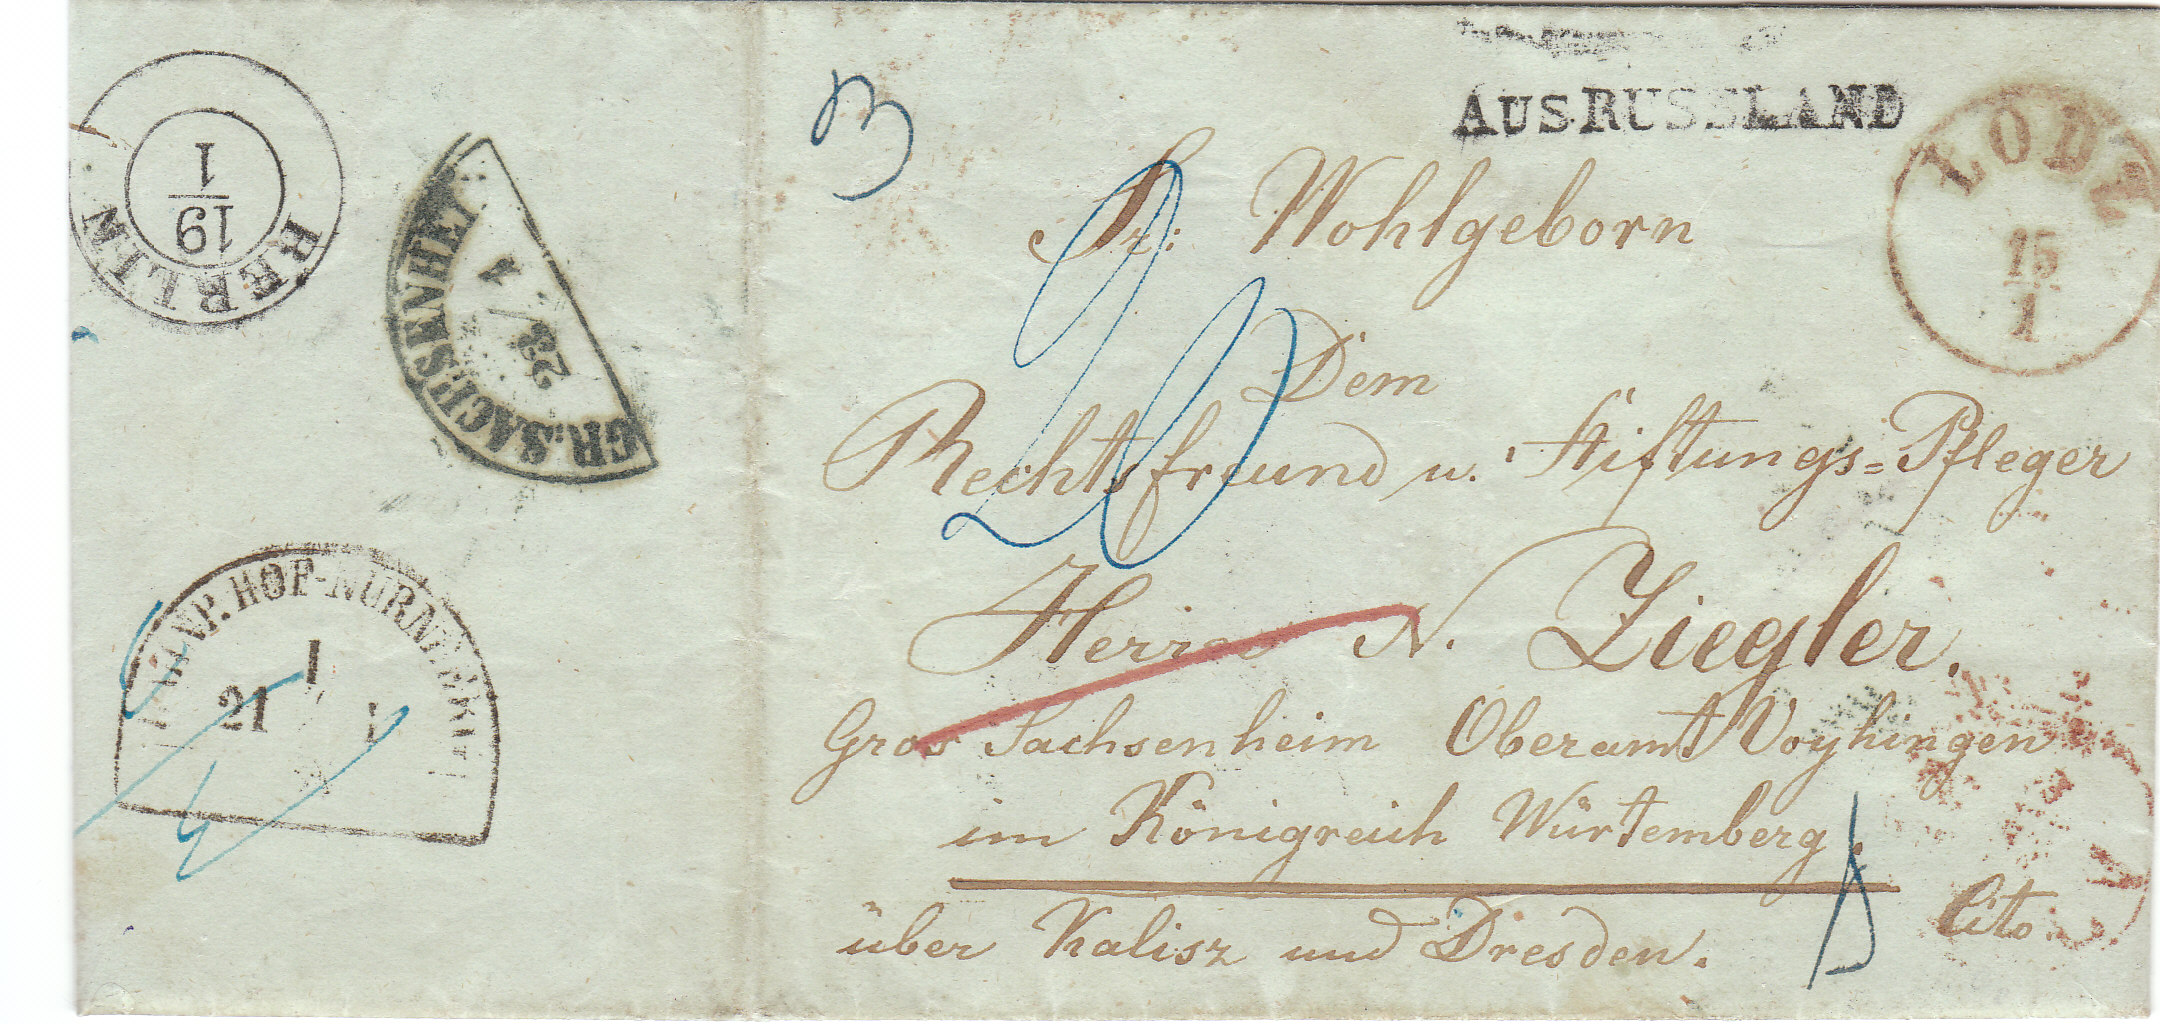 BERLIN
19
1
GR. SACHSENHEI
23
1
HOF-NÜRN
21 I
AUS RUSSLAND
LODZ
15
1
3
Sr: Wohlgeborn
20
Dem
Rechtsfreund u. Stiftungs=Pfleger
Herrn N. Ziegler.
Gros Sachsenheim Oberamt Voyhingen
im Königreich Würtemberg.
Cito
über Kalisz und Dresden.